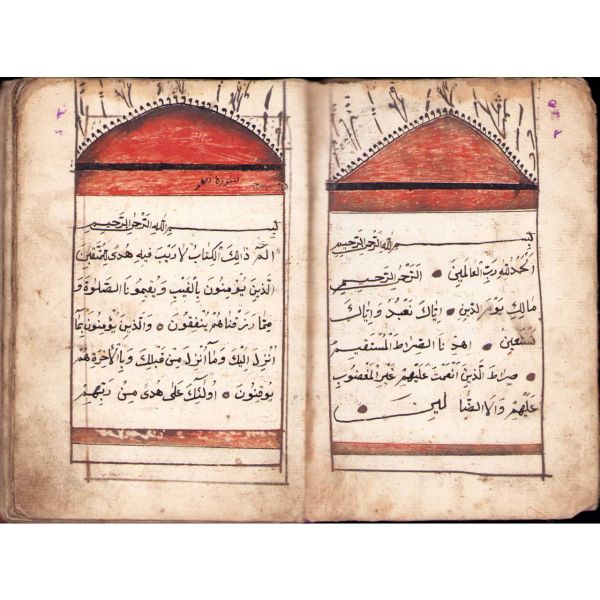 بسم الله الرحمن الرحيم
الحمد لله رب العالمين ● الرحمن الرحيم
مالك يوم الدين ● اياك نعبد و اياك
نستعين ● اهدنا الصراط المستقيم
● صراط الذين انعمت عليهم غير المغضوب
عليهم ولا الضا لين ●
سورة البقر
بسم الله الرحمن الرحيم
الم ذالك الكتاب لا ريب فيه هدى للمتقين
الذين يؤمنون بالغيب و يقيمونا الصلوة و
مما رزقناهم ينفقون ● والذين يؤمنون بما
انزل اليك وما انزل من قبلك و بالآخرة هم
يوقنون ● اولئك على هدى من ربهم